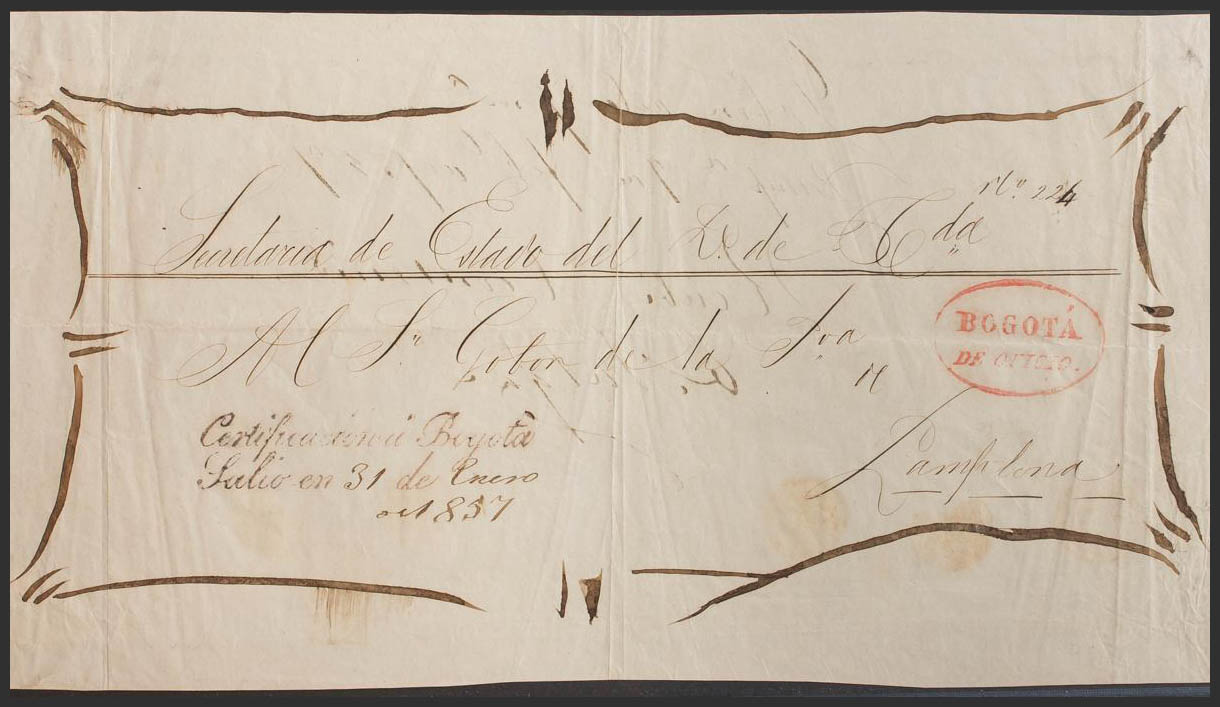 No. 224
Secretaria de Estado del D. de Hda
Al Sr. Gobor de la Prva
BOGOTÁ
DE OFICIO.
de
Certificacion á Bogotá
Pamplona
Salio en 31 de Enero
de 1857